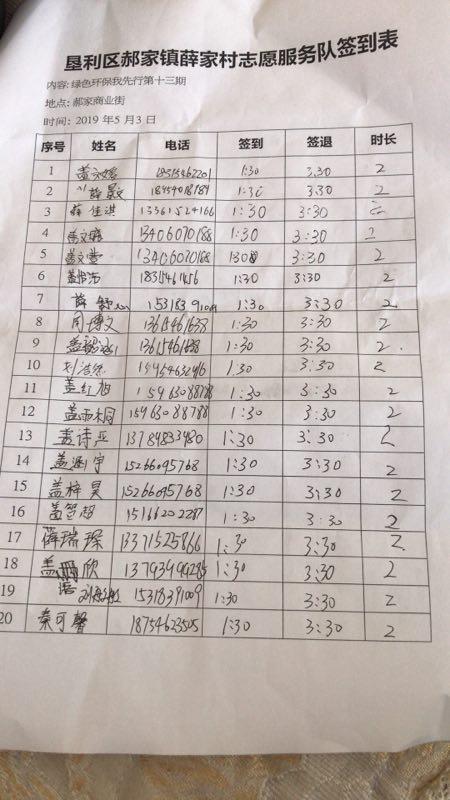 垦利区郝家镇薛家村志愿服务队签到表
内容: 绿色环保我先行第十三期
地点: 郝家商业街
时间: 2019 年 5 月 3 日
序号 姓名 电话 签到 签退 时长
1 1:30 3:30 2
2 1:30 3:30 2
3 薛佳淇 13361524166 1:30 3:30 2
4 13406070188 1:30 3:30 2
5 13406070188 3:30 2
6 1:30 3:30 2
7 薛 1:30 3:30 2
8 周博文 13615461638 1:30 3:30 2
9 1:30 3:30 2
10 1:30 3:30 2
11 盖红旭 15963088788 1:30 3:30 2
12 盖雨桐 15963088788 1:30 3:30 2
13 盖诗亚 1:30 3:30 2
14 盖涵宇 15266095768 1:30 3:30 2
15 盖梓昊 15266095768 1:30 3:30 2
16 盖智超 15166202287 1:30 3:30 2
17 薛瑞琛 13371525866 1:30 3:30 2
18 盖 欣 1:30 3:30 2
19 15318391009 1:30 3:30 2
20 秦可馨 18754623505 1:30 3:30 2